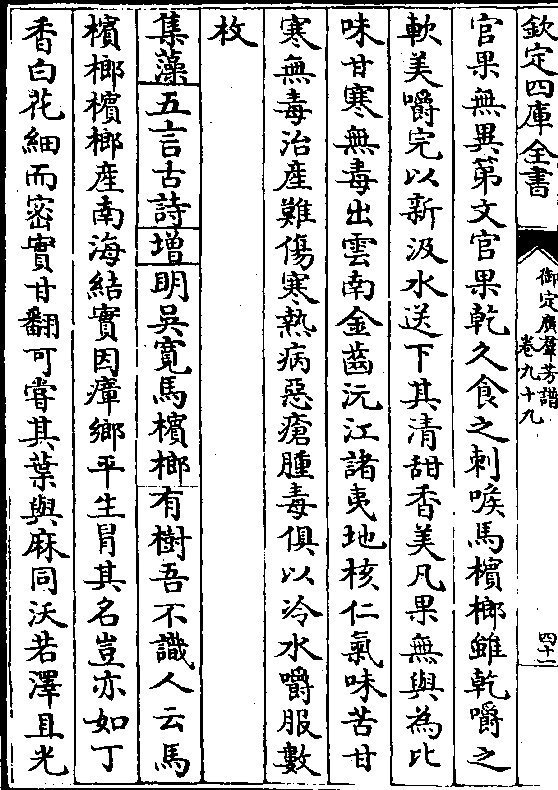 欽定四庫全書
御定廣羣芳譜
卷九十九
四十二
官果無異第文官果乾久食之刺喉馬檳榔雖乾嚼之
軟美嚼完以新汲水送下其清甜香美凡果無與為比
味甘寒無毒出雲南金齒沅江諸夷地核仁氣味苦甘
寒無毒治產難傷寒熱病惡瘡腫毒俱以冷水嚼服數
枚
集藻五言古詩增明吳寬馬檳榔有樹吾不識人云馬
檳榔檳榔產南海結實因瘴鄉平生冐其名豈亦如丁
香白花細而密實甘翻可嘗其葉與麻同沃若澤且光